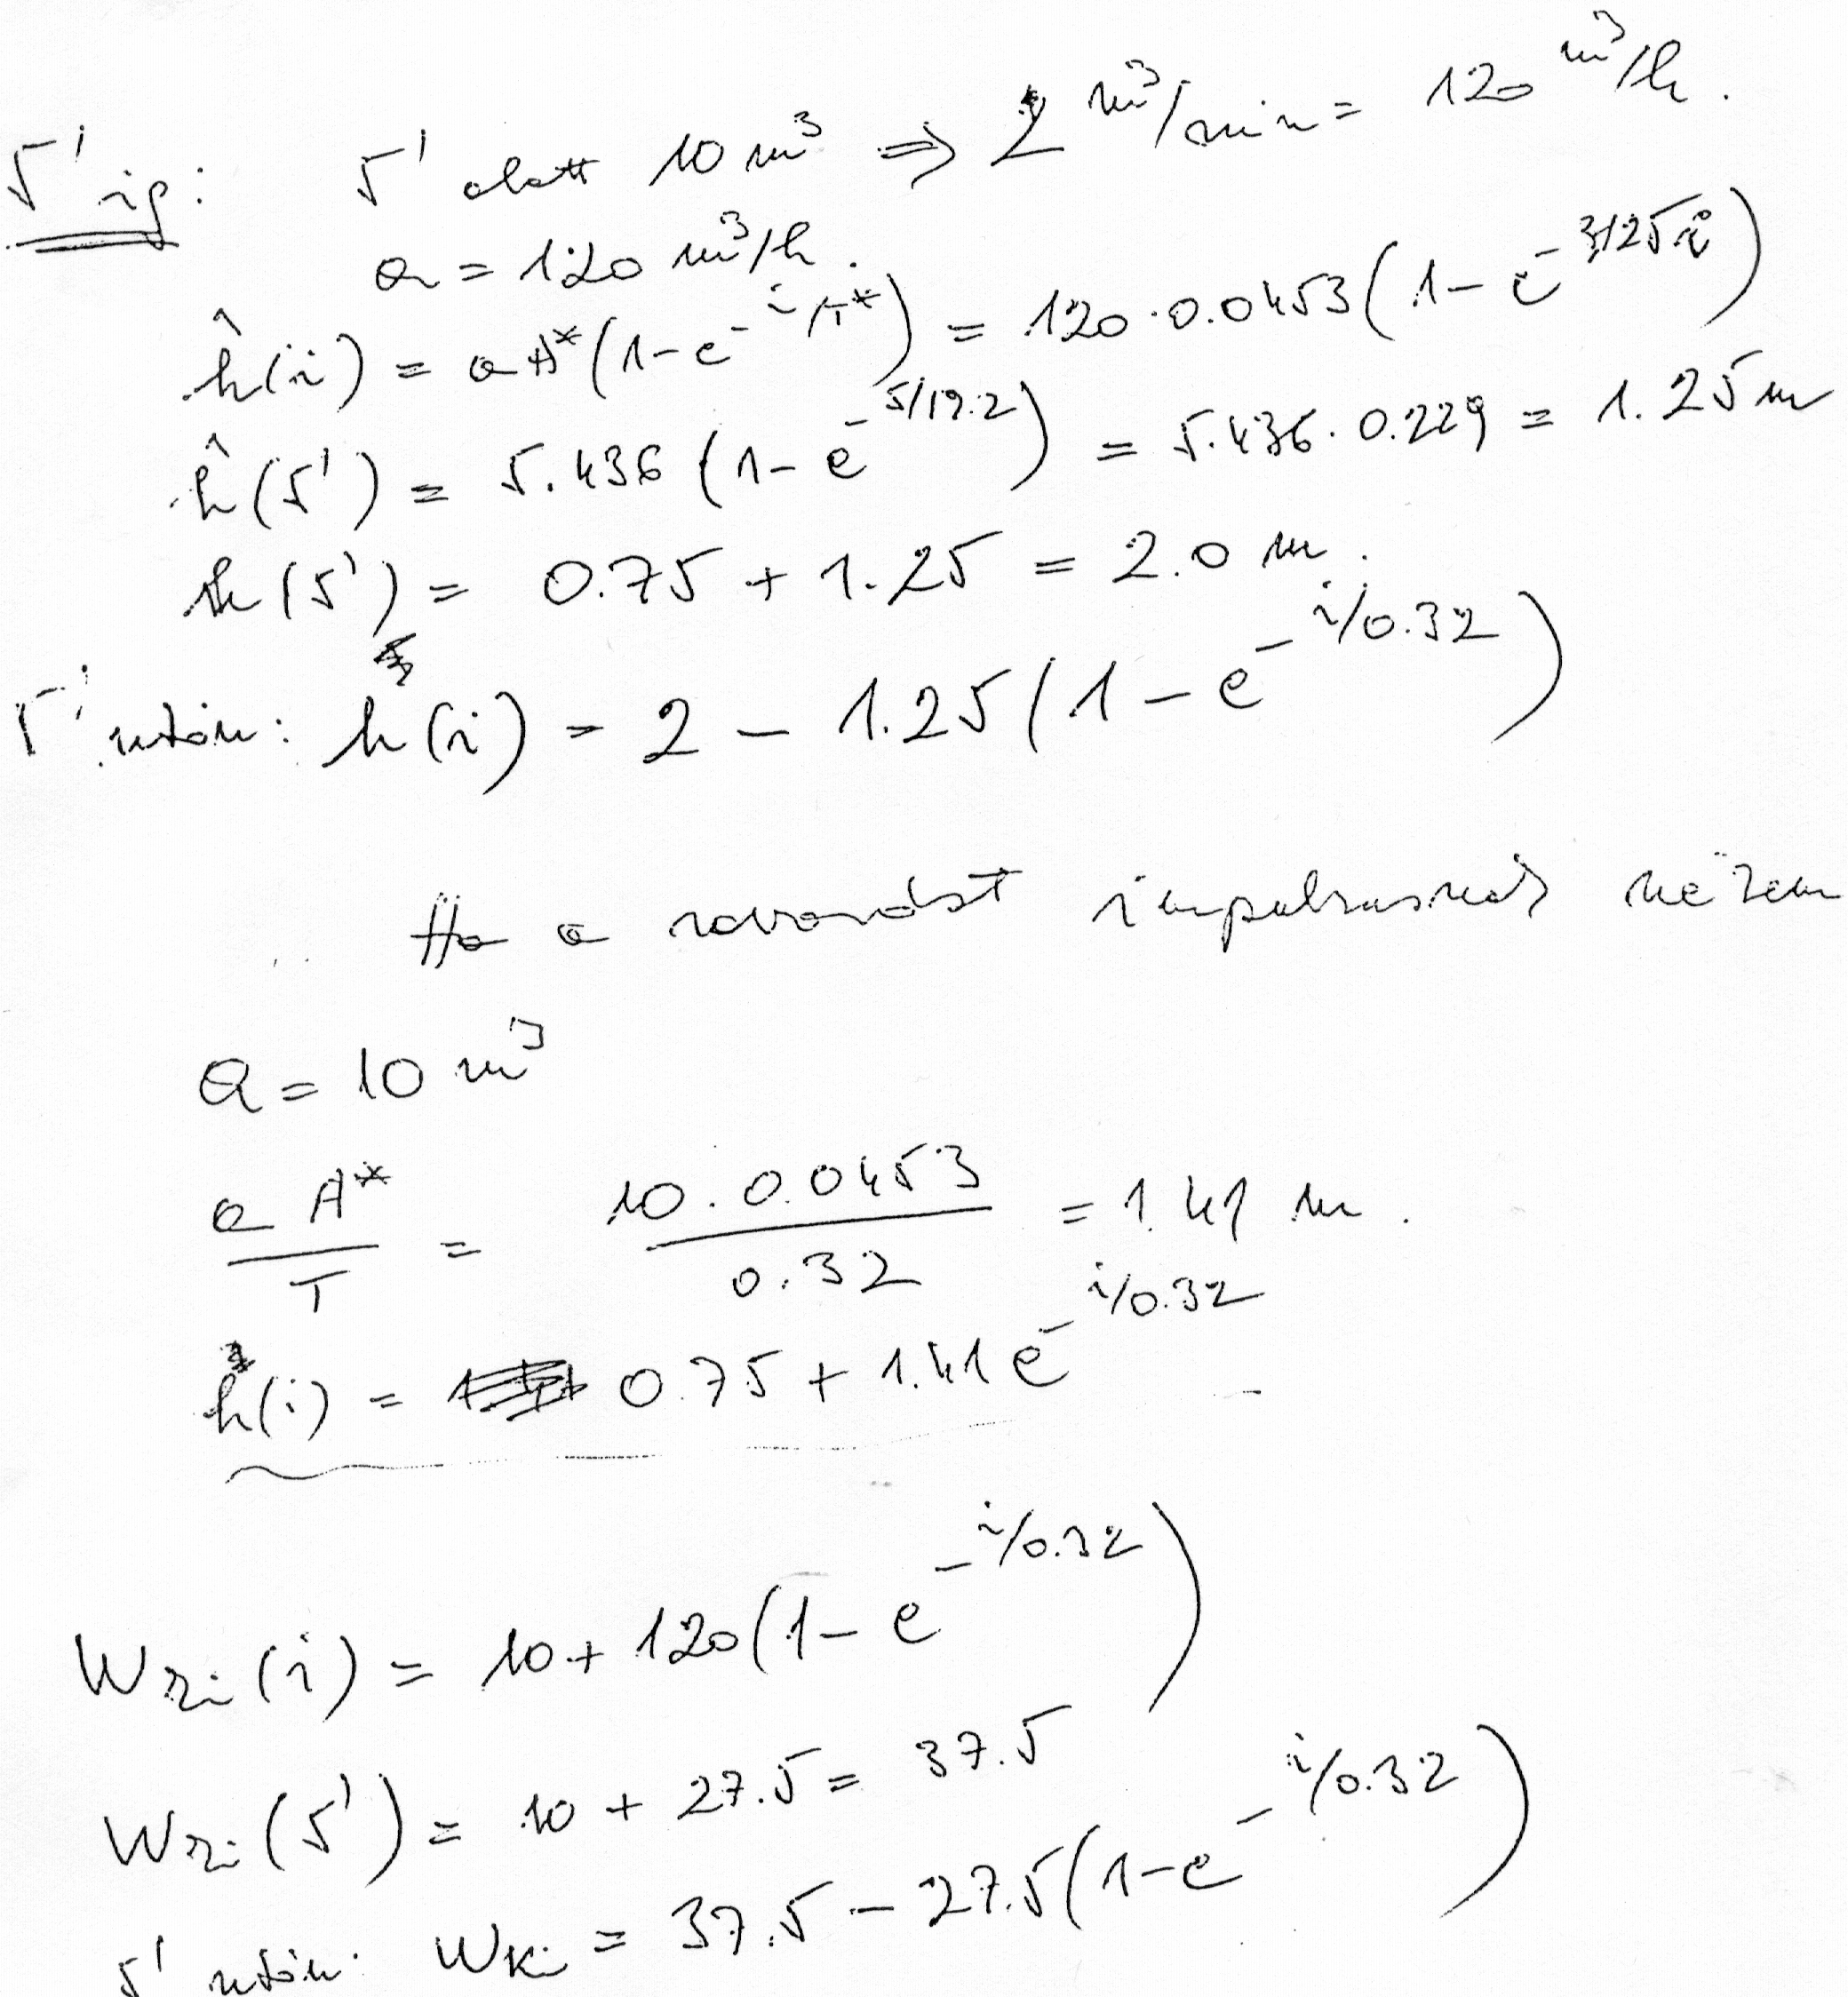 5' ig: 5' alatt 10 m³ ⇒ 2 m³/min = 120 m³/h.
a = 120 m³/h.
ĥ(i) = a A*(1-e^{-i/T*}) = 120·0.0453(1-e^{-3.125i})
ĥ(5') = 5.436(1-e^{-5/19.2}) = 5.436·0.229 = 1.25 m
h(5') = 0.75 + 1.25 = 2.0 m.
5' után: h(i) = 2 - 1.25(1-e^{-i/0.32})
Ha a zavarást impulzusnak nézem
a = 10 m³
a A*/T = 10·0.0453/0.32 = 1.41 m.
h(i) = 0.75 + 1.41 e^{-i/0.32}
Wki(i) = 10 + 120(1-e^{-i/0.32})
Wki(5') = 10 + 27.5 = 37.5
5' után: Wki = 37.5 - 27.5(1-e^{-i/0.32})